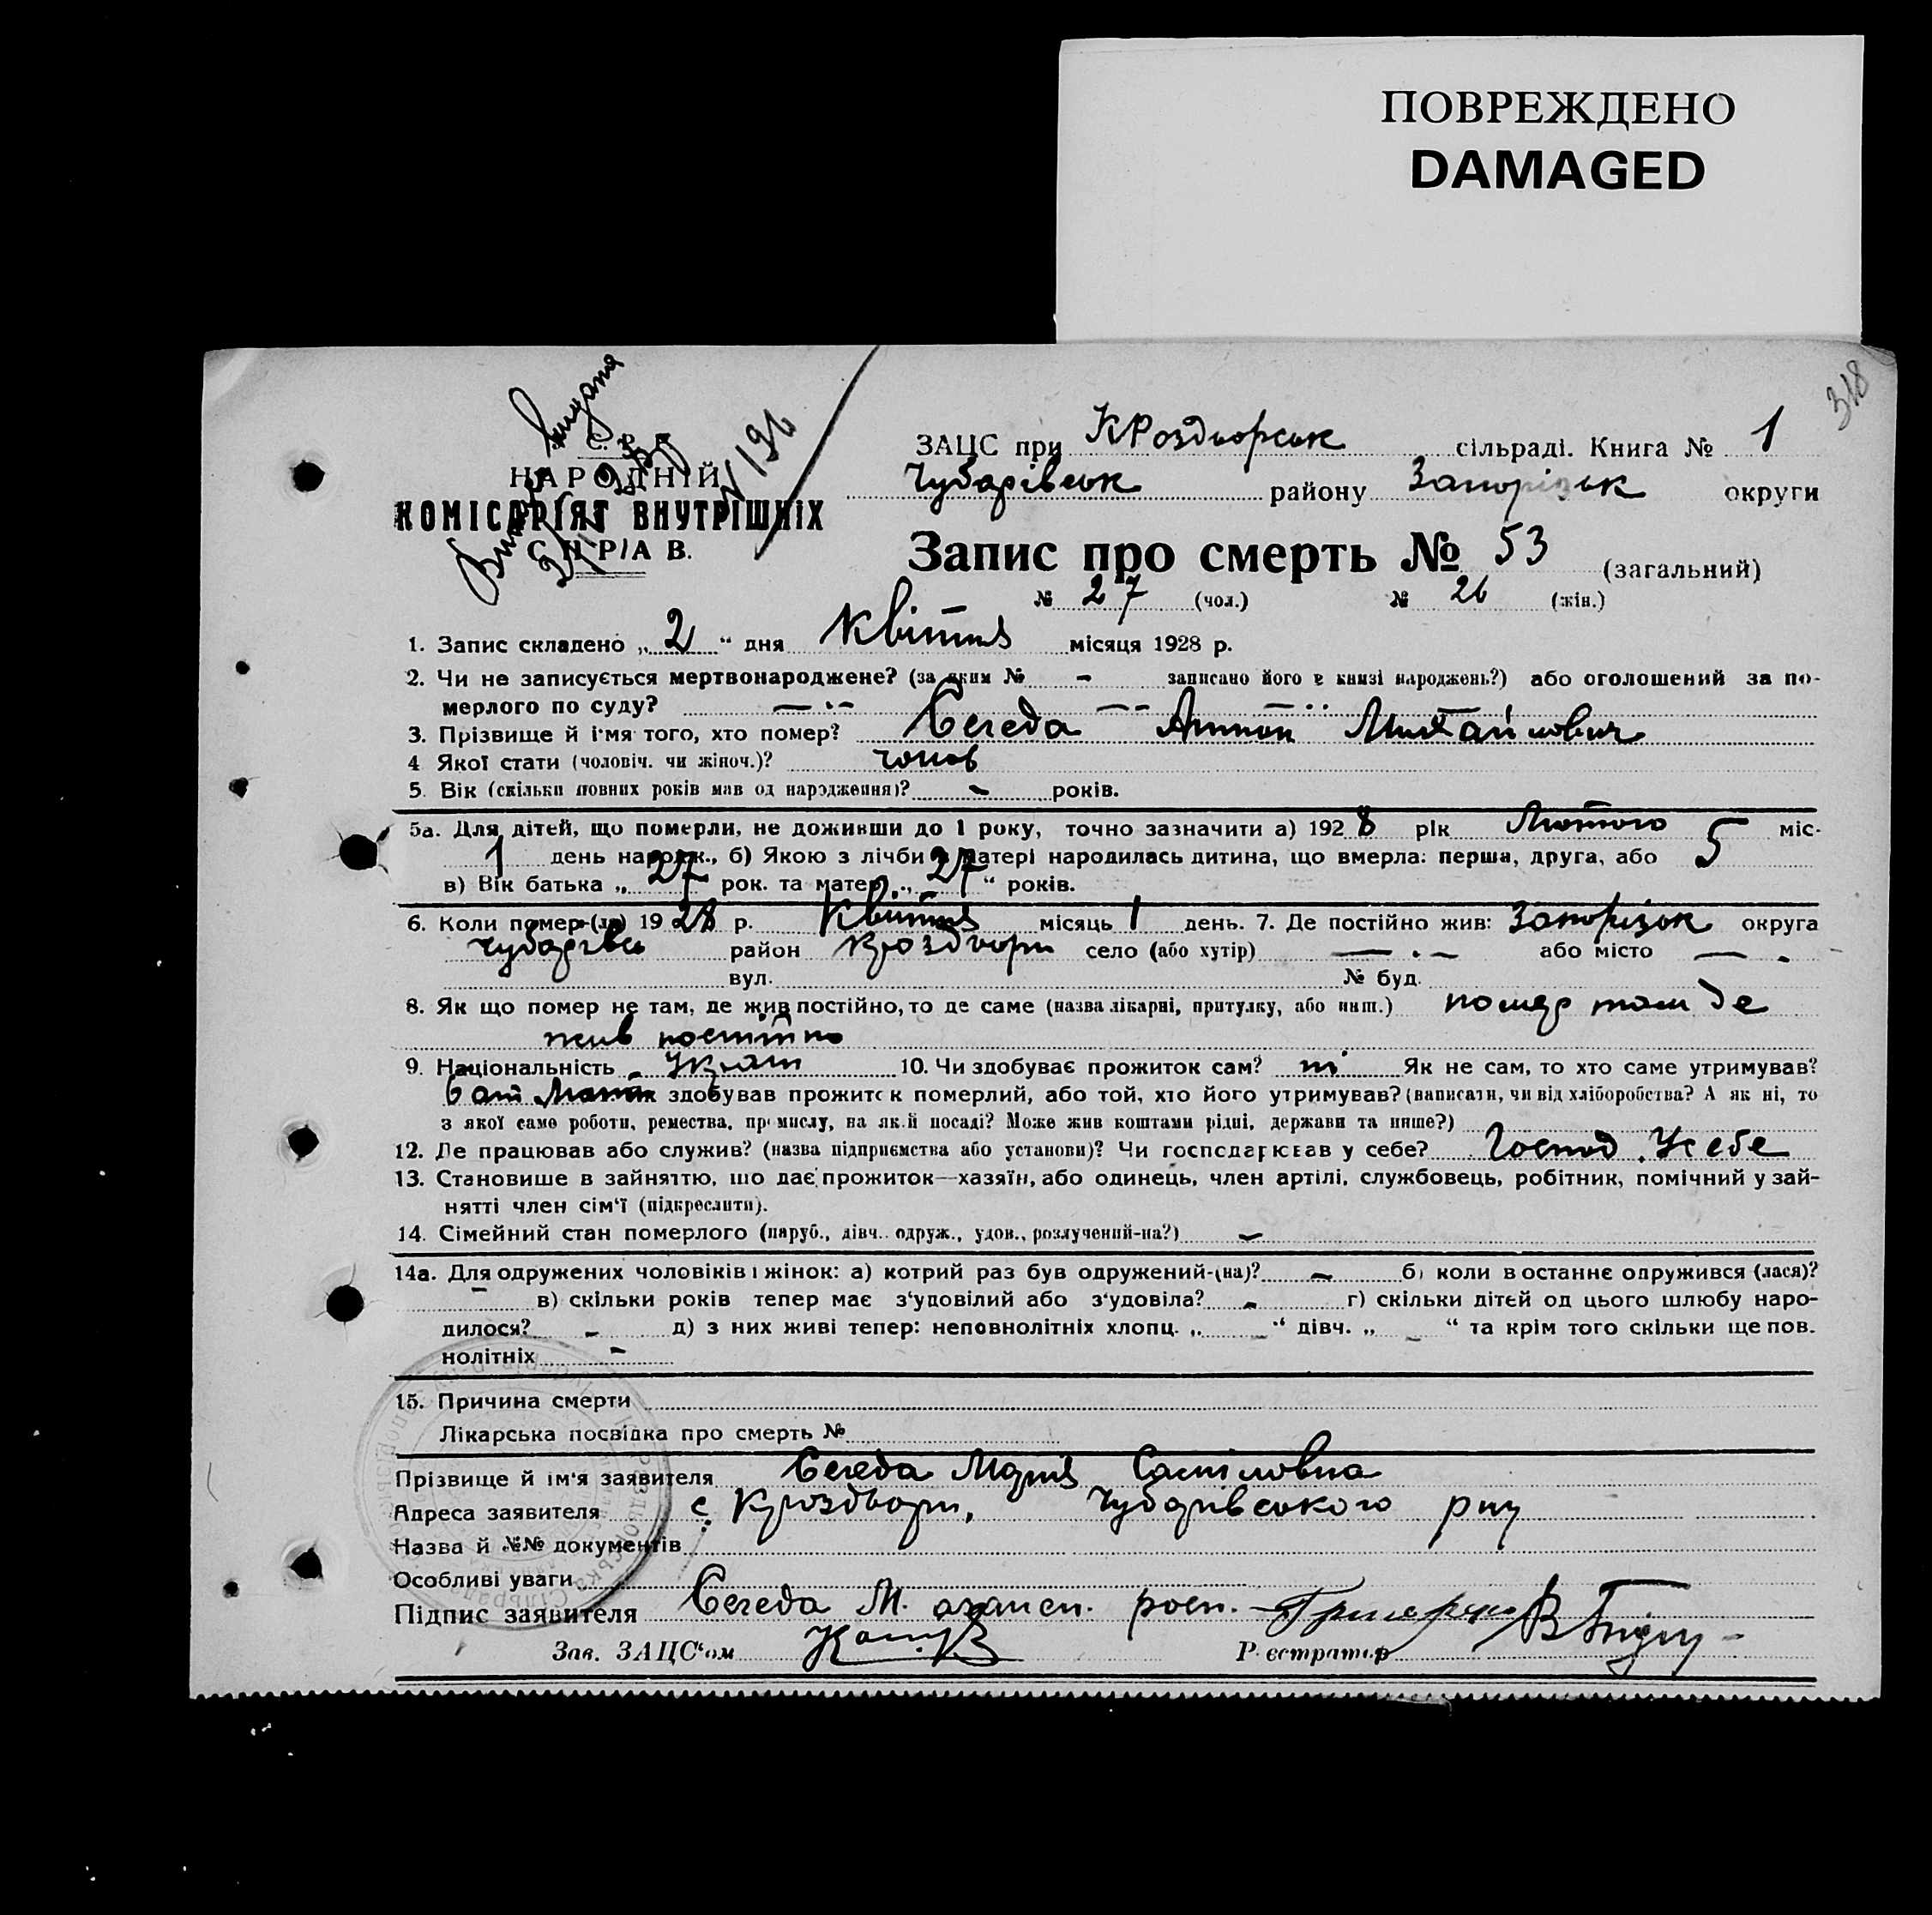 ПОВРЕЖДЕНО
DAMAGED
318
Видана
№ 196
НАРОДНІЙ
КОМІСАРІЯТ ВНУТРІШНІХ
СПРАВ.
ЗАЦС при КРоздорськ сільраді. Книга № 1
Чубарівськ району Запорізьк округи
Запис про смерть № 53 (загальний)
№ 27 (чол.) № 26 (жін.)
1. Запис складено „ 2 “ дня Квітня місяця 1928 р.
2. Чи не записується мертвонароджене? (за яким № - записано його в книзі народжень?) або оголошений за по-
мерлого по суду?
3. Прізвище й ім'я того, хто помер? Середа Антон Михайлович
4 Якої стати (чоловіч. чи жіноч.)? чолов
5. Вік (скільки повних років мав од народження)? - років.
5а. Для дітей, що померли, не доживши до 1 року, точно зазначити а) 1928 рік Лютого міс-
1 день народж., б) Якою з лічби в матері народилась дитина, що вмерла: перша, друга, або 5
в) Вік батька „ 27 рок. та матері „ 27 “ років.
6. Коли помер-(ла) 1928 р. Квітня місяць 1 день. 7. Де постійно жив: Запорізьк округа
Чубарівсь район село (або хутір) — . — або місто — .
вул. № буд.
8. Як що помер не там, де жив постійно, то де саме (назва лікарні, притулку, або инш.) помер там де
жив постійно
9. Національність Україн 10. Чи здобуває прожиток сам? ні Як не сам, то хто саме утримував?
здобував прожиток померлий, або той, хто його утримував? (написати, чи від хліборобства? А як ні, то
з якої саме роботи, ремества, промислу, на якій посаді? Може жив коштами рідні, держави та инше?)
12. Де працював або служив? (назва підприємства або установи)? Чи господарював у себе? Господ. У себе
13. Становище в зайняттю, що дає прожиток—хазяїн, або одинець, член артілі, службовець, робітник, помічний у зай-
нятті член сім'ї (підкреслити).
14. Сімейний стан померлого (паруб., дівч., одруж., удов., розлучений-на?) -
14а. Для одружених чоловіків і жінок: а) котрий раз був одружений-(на)? - б) коли востаннє одружився (лася)?
- в) скільки років тепер має з'удовілий або з'удовіла? - г) скільки дітей од цього шлюбу наро-
дилося? - д) з них живі тепер: неповнолітніх хлопц. „ - “ дівч. „ - “ та крім того скільки ще пов.
нолітніх -
15. Причина смерти
Лікарська посвідка про смерть №
Прізвище й ім'я заявителя Середа Марія
Адреса заявителя с. Чубарівського р-ну
Назва й №№ документів
Особливі уваги
Підпис заявителя Середа М.
Зав. ЗАЦС'ом Реєстратор